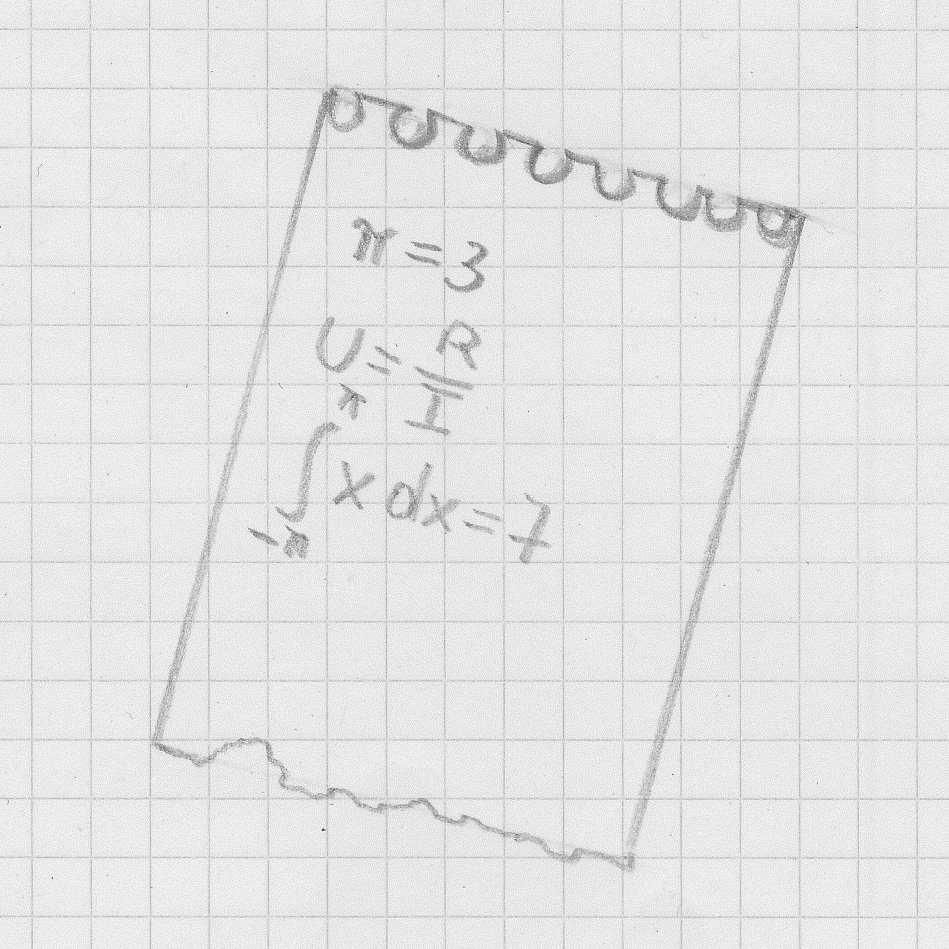 π = 3
U = R/I
∫_{-π}^{π} x dx = 7